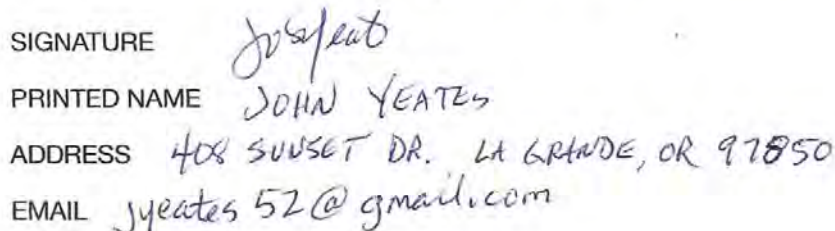 SIGNATURE
PRINTED NAME JOHN YEATES
ADDRESS 408 SUNSET DR. LA GRANDE, OR 97850
EMAIL jyeates52@gmail.com